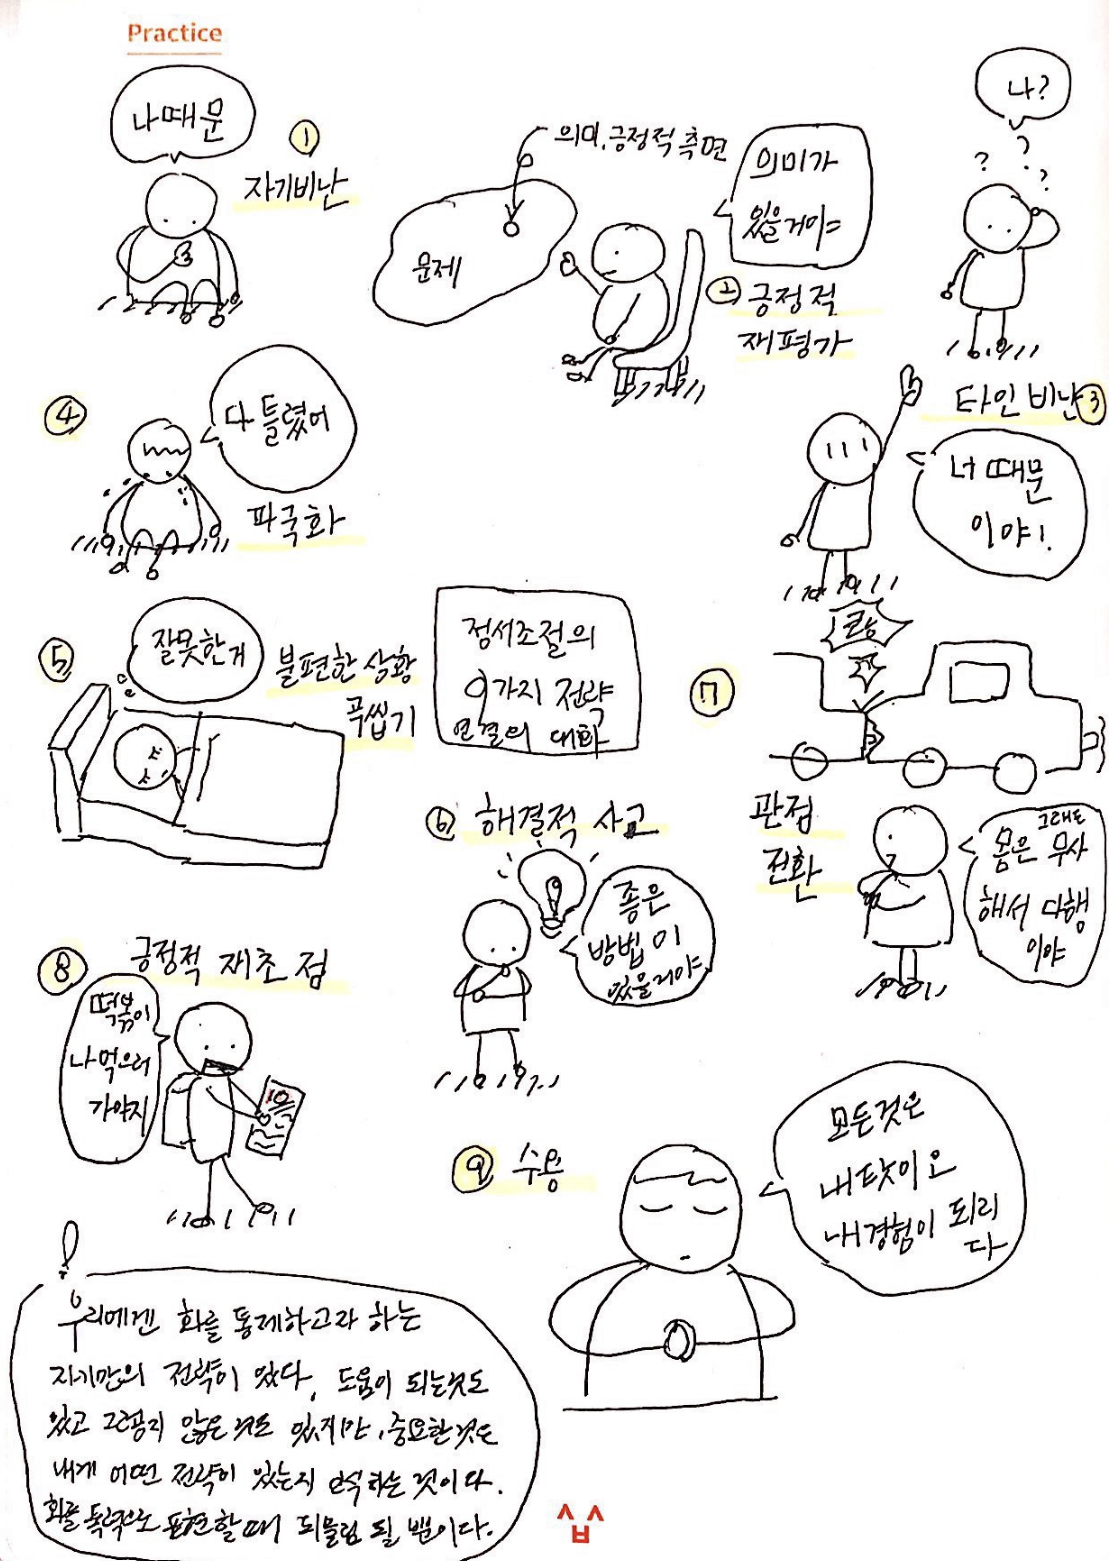 Practice
나때문
①
자기비난
의미, 긍정적 측면
문제
의미가
있을거야
② 긍정적
재평가
나?
? ? ?
타인 비난 ③
너 때문
이야!
④
다 틀렸어
파국화
⑤
잘못한거
불편한 상황
곡씹기
정서조절의
9가지 전략
연결의 대화
⑥ 해결적 사고
좋은
방법이
있을거야
⑦
쾅
관점
전환
그래도
몸은 무사
해서 다행
이야
⑧ 긍정적 재초점
떡볶이
나 먹으러
가야지
10
⑨ 수용
모든것은
내탓이오
내경험이 되리
다
!
우리에겐 화를 통제하고자 하는
자기만의 전략이 있다, 도움이 되는것도
있고 그렇지 않은것도 있지만, 중요한것은
내게 어떤 전략이 있는지 인식하는 것이다.
화를 폭력으로 표현할때 되물림 될 뿐이다.
숩